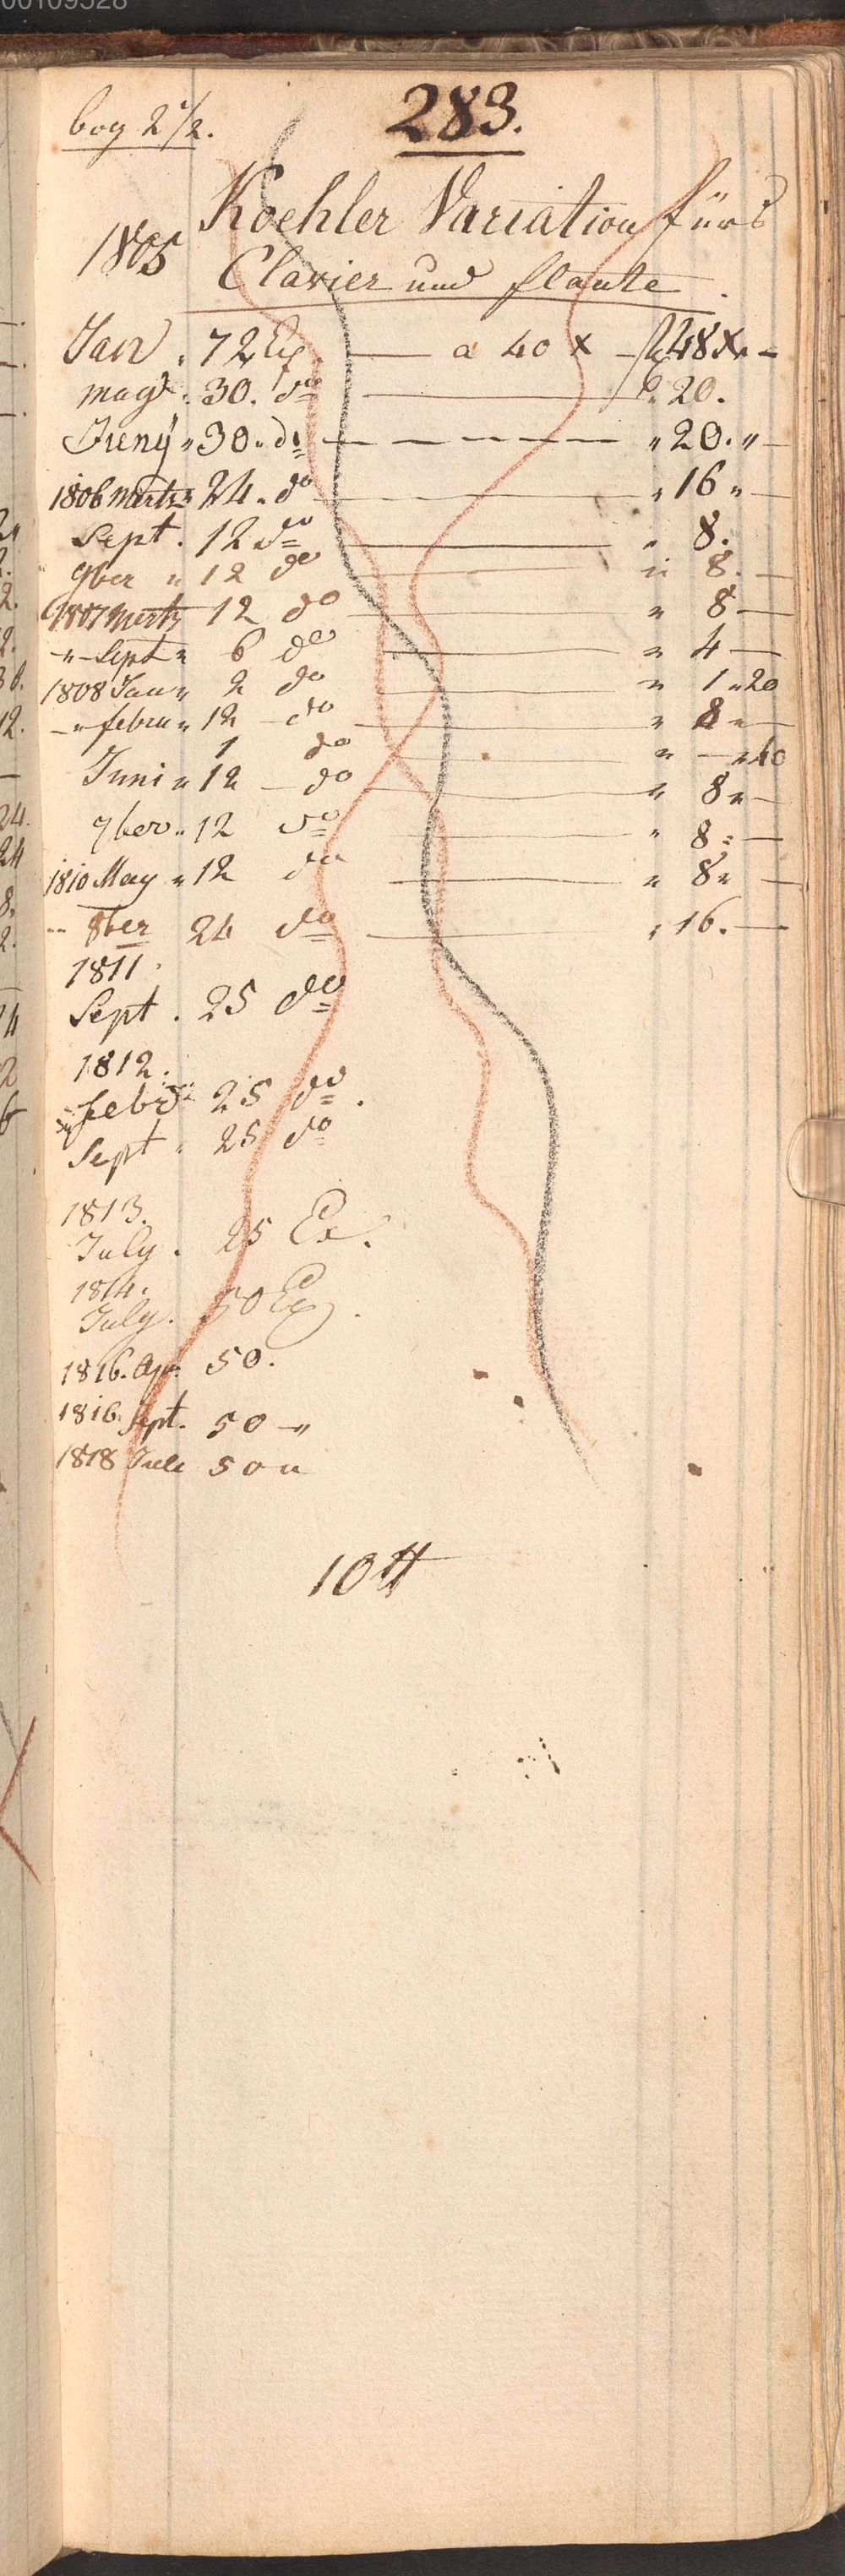 00109528
bog 2 1/2.
283.
Koehler Variation fürs
1805
Clavier und flaute.
Jan. 72 Ex — a 40 x — f 48 x —
may. 30. do — 20.
Juny " 30. do — — — — " 20. " —
1806 Mertz " 24. do — " 16 " —
Sept. 12 do — " 8.
9ber " 12 do — " 8. —
1807 Mertz 12 do — " 8 —
" Sept " 6 do — " 4 —
1808 Jan " 2 do — " 1 " 20
— " febru " 12 — do — " 8 " —
1 do " — " 40
Juni " 12 — do — " 8 " —
7ber " 12 do — " 8 = —
1810 May " 12 do — " 8 " —
" 8ber 24 do — " 16. —
1811.
Sept. 25 do
1812.
febr 25 do.
Sept " 25 do
1813.
July. 25 Ex.
1814.
July. 50 Ex.
1816. Ap. 50.
1816. Sept. 50 —"
1818 Jule 50 "